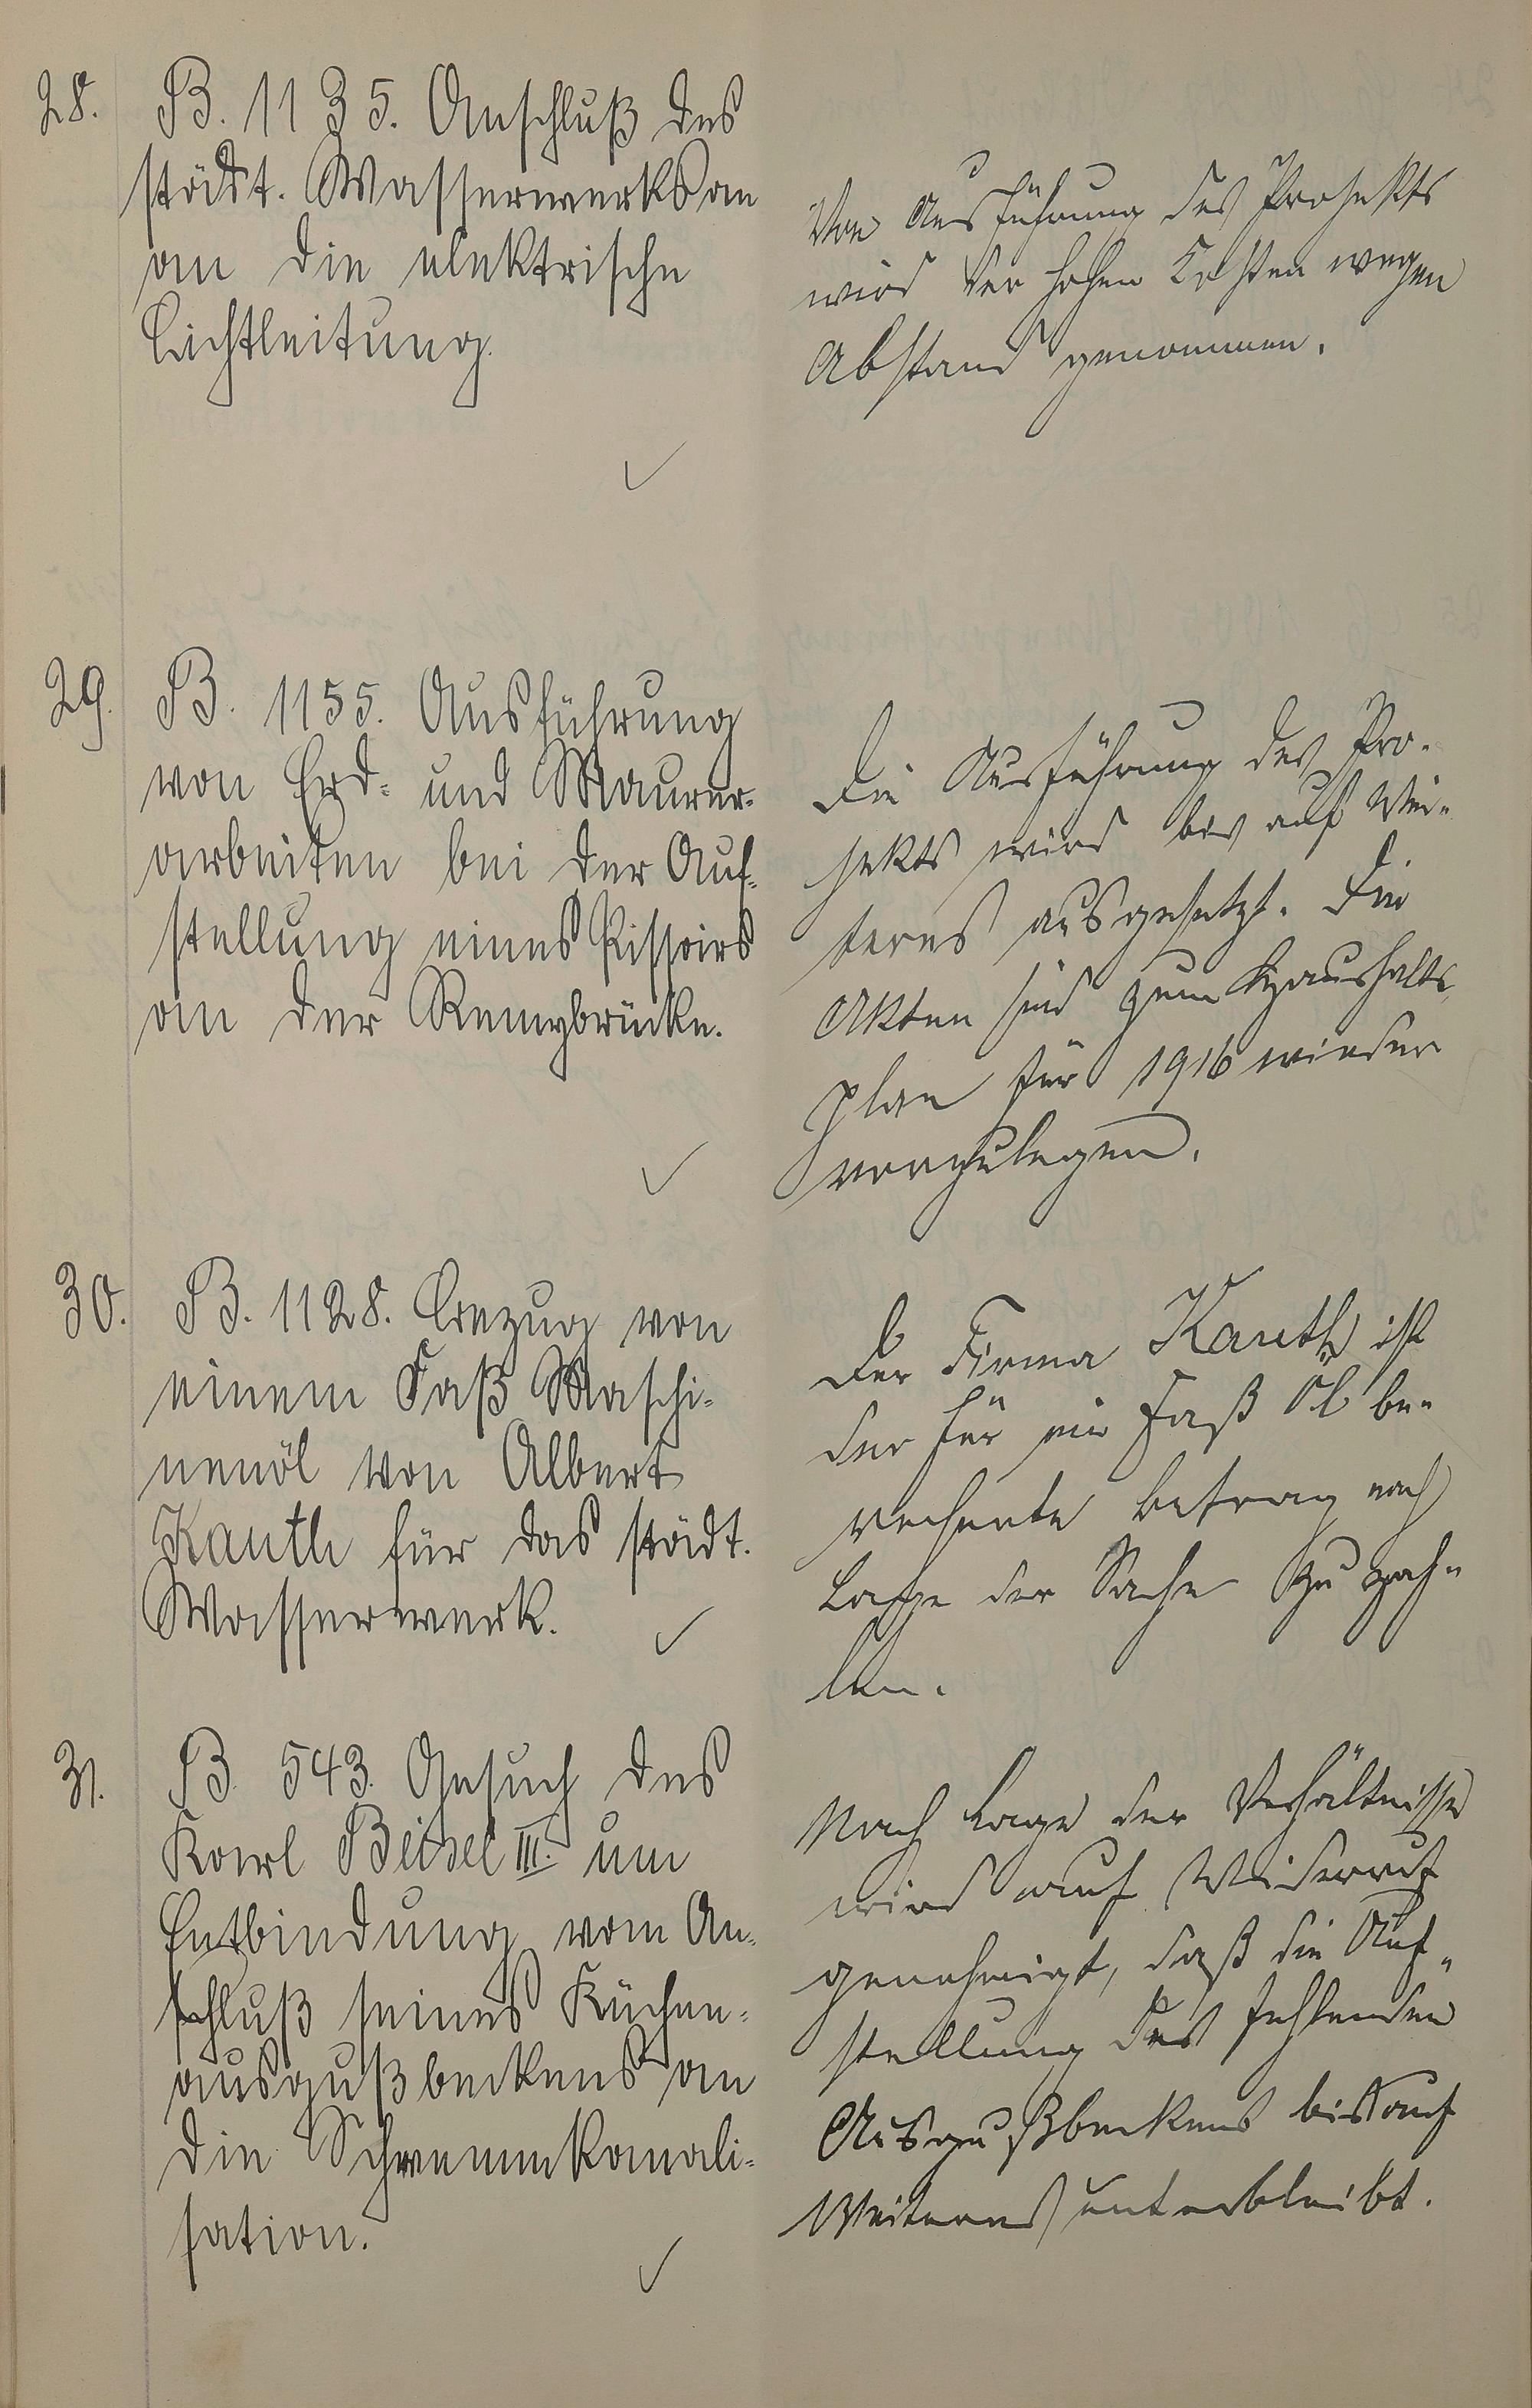 28.
B. 1135. Anschluß des
städt. Wasserwerks an
an die elektrische
Lichtleitung.
Von Ausführung des Projekts
wird der hohen Kosten wegen
Abstand genommen.
29.
B. 1155. Ausführung
von Erd- und Maurer-
arbeiten bei der Auf-
stellung eines Pissoirs
an der Remybrücke.
Die Ausführung des Pro-
jekts wird bis auf Wei-
teres ausgesetzt. Die
Akten sind zum Haushalts-
plan für 1916 wieder
vorzulegen.
30.
B. 1128. Bezug von
einem Faß Maschi-
nenöl von Albert
Kauth für das städt.
Wasserwerk.
Der Firma Kauth ist
der für ein Faß Öl be-
rechnete Betrag nach
Lage der Sache zu zah-
len.
31.
B. 543. Gesuch des
Karl Beisel III. um
Entbindung vom An-
schluß seines Küchen-
ausgußbeckens an
die Schwemmkanali-
sation.
Nach Lage der Verhältnisse
wird auf Widerruf
genehmigt, daß die Auf-
stellung des fehlenden
Ausgußbeckens bis auf
Weiteres unterbleibt.